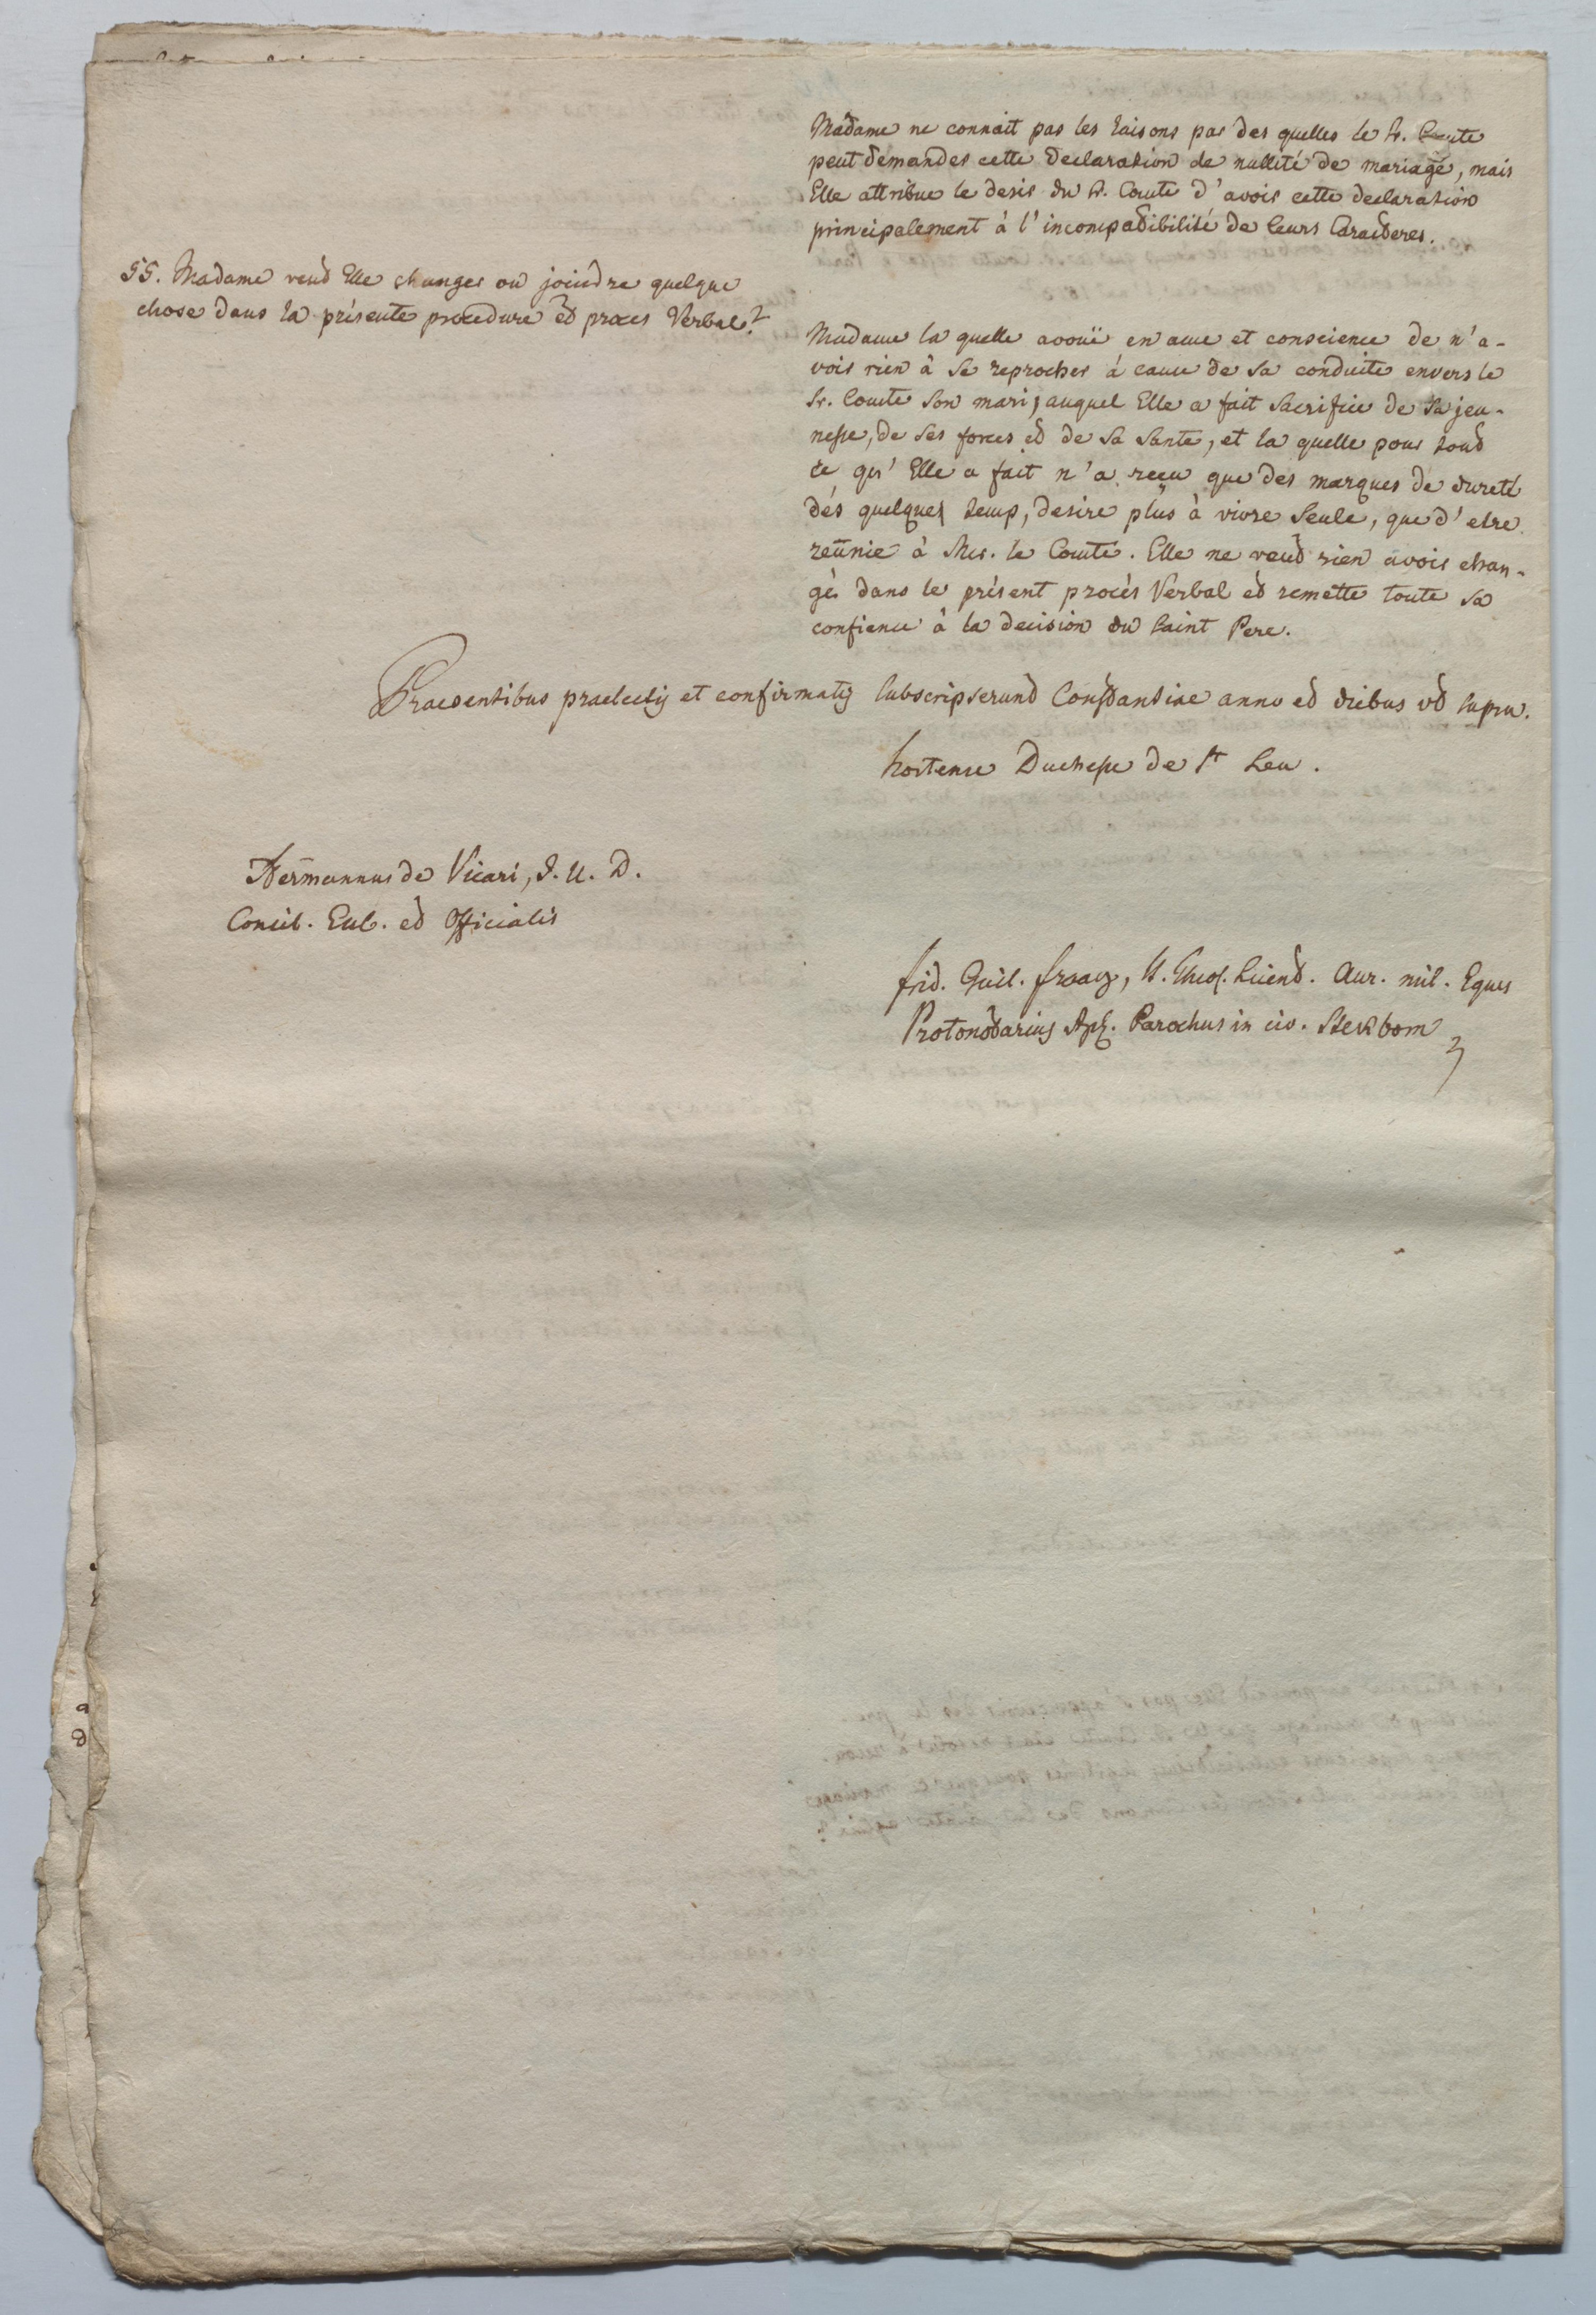 Madame ne connait pas les raisons par des quelles le Sr. Comte
peut demander cette declaration de nullité de mariage, mais
Elle attribue le desir du Sr. Comte d'avoir cette declaration
principalement à l'incompatibilité de leurs Caracteres.
55. Madame veut Elle changer ou joindre quelque
chose dans la présente procedure et proces Verbal?
Madame la quelle avouë en ame et conscience de n'a-
voir rien à se reprocher à cause de sa conduite envers le
Sr. Comte son mari, auquel Elle a fait sacrifice de sa jeu-
nesse, de ses forces et de sa sante, et la quelle pour tout
ce qu' Elle a fait n'a reçu que des marques de dureté
dés quelques temp, desire plus à vivre seule, que d'etre
reünie à Mr. le Comte. Elle ne veut rien avoir chan-
gé dans le présent procés Verbal et remette toute sa
confience à la decision du Saint Pere.
Praesentibus praelectis et confirmatis subscripserunt Constantiae anno et diebus ut supra.
hortense Duchesse de St Leu.
Hermannus de Vicari, J. U. D.
Consil. Eccl. et Officialis
frid. Guil. , SS. Theol. Licent. Aur. mil. Eques
Protonotarius Apl. Parochus in civ. Stekborn